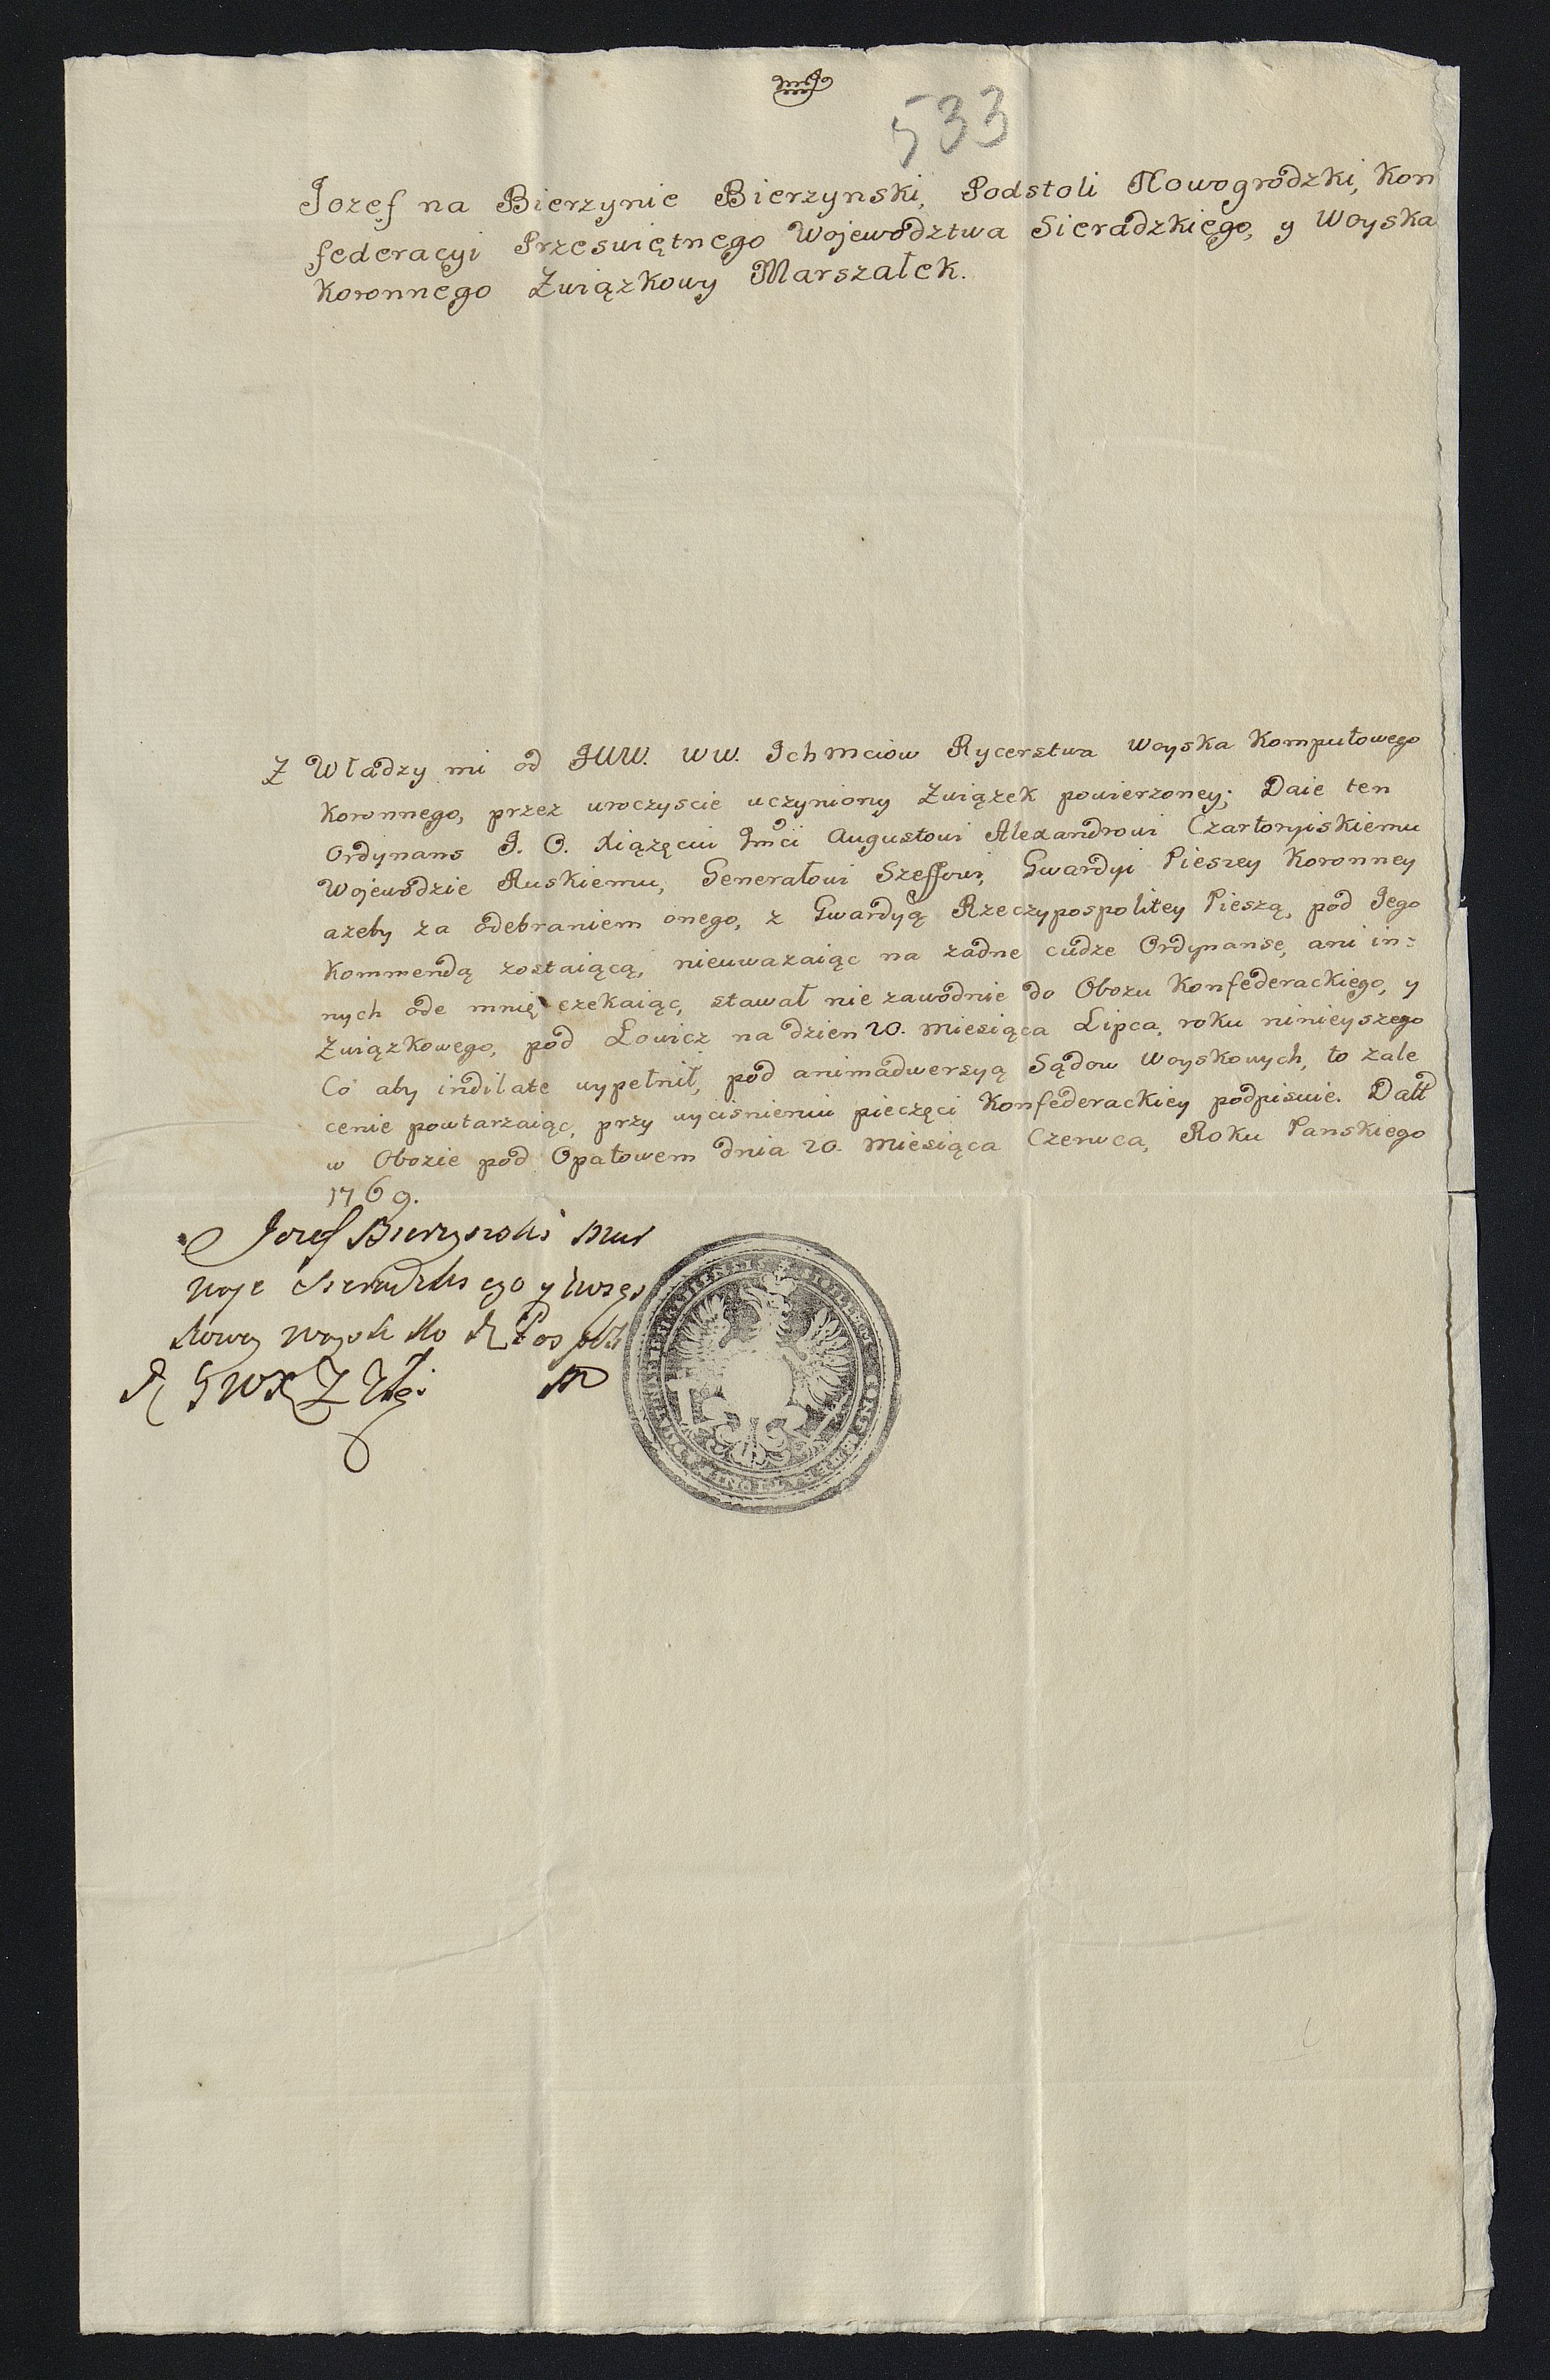 533
Jozef na Bierzynie Bierzynski, Podstoli Nowogrodzki, Kon
federacyi Przeswiętnego Wojewodztwa Sieradzkiego, y Woyska
Koronnego Związkowy Marszałek.
Z Władzy mi od JWW. WW. Ichmciow Rycerstwa Woyska Komputowego
Koronnego, przez uroczyscie uczyniony Związek powierzoney; Daie ten
Ordynans J. O. Xiążęciu Jmci Augustowi Alexandrowi Czartoryiskiemu
Wojewodzie Ruskiemu, Generałowi Szeffowi, Gwardyi Pieszey Koronney
azeby za odebraniem onego, z Gwardyą Rzeczypospolitey Pieszą, pod Jego
Kommendą zostaiącą, nieuwazaiąc na zadne cudze Ordynanse, ani in=
nych ode mnie czekaiąc, stawał nie zawodnie do Obozu Konfederackiego, y
Związkowego, pod Łowicz na dzien 20. miesiąca Lipca, roku ninieyszego
Co aby indilate wypełnił, pod animadwersyą Sądow Woyskowych, to zale
cenie powtarzaiąc, przy wycisnieniu pieczęci Konfederackiey podpisuie. Datt
w Obozie pod Opatowem dnia 20. miesiąca Czerwca, Roku Panskiego
1769.
Jozef Bierzynski Mar
Woje Sieradzkiego y Związ
kowy Woysk